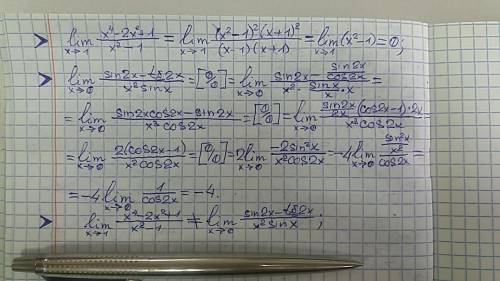 ➤ lim x→1 (x⁴-2x²+1)/(x²-1) = lim x→1 ((x-1)²(x+1)²)/((x-1)(x+1)) = lim x→1 (x²-1)=0;
➤ lim x→0 (sin2x-tg2x)/(x²sinx) = [0/0] = lim x→0 (sin2x - sin2x/cos2x)/(x²·(sinx/x)·x) =
= lim x→0 (sin2xcos2x-sin2x)/(x³cos2x) = [0/0] = lim x→0 ((sin2x/2x)(cos2x-1)·2x)/(x³cos2x)
= lim x→0 (2(cos2x-1))/(x²cos2x) = [0/0] = 2lim x→0 (-2sin²x)/(x²cos2x) = -4lim x→0 (sin²x/x²)/(cos2x) =
= -4 lim x→0 1/cos2x = -4.
➤ lim x→1 (x⁴-2x²+1)/(x²-1) ≠ lim x→0 (sin2x-tg2x)/(x²sinx) ;